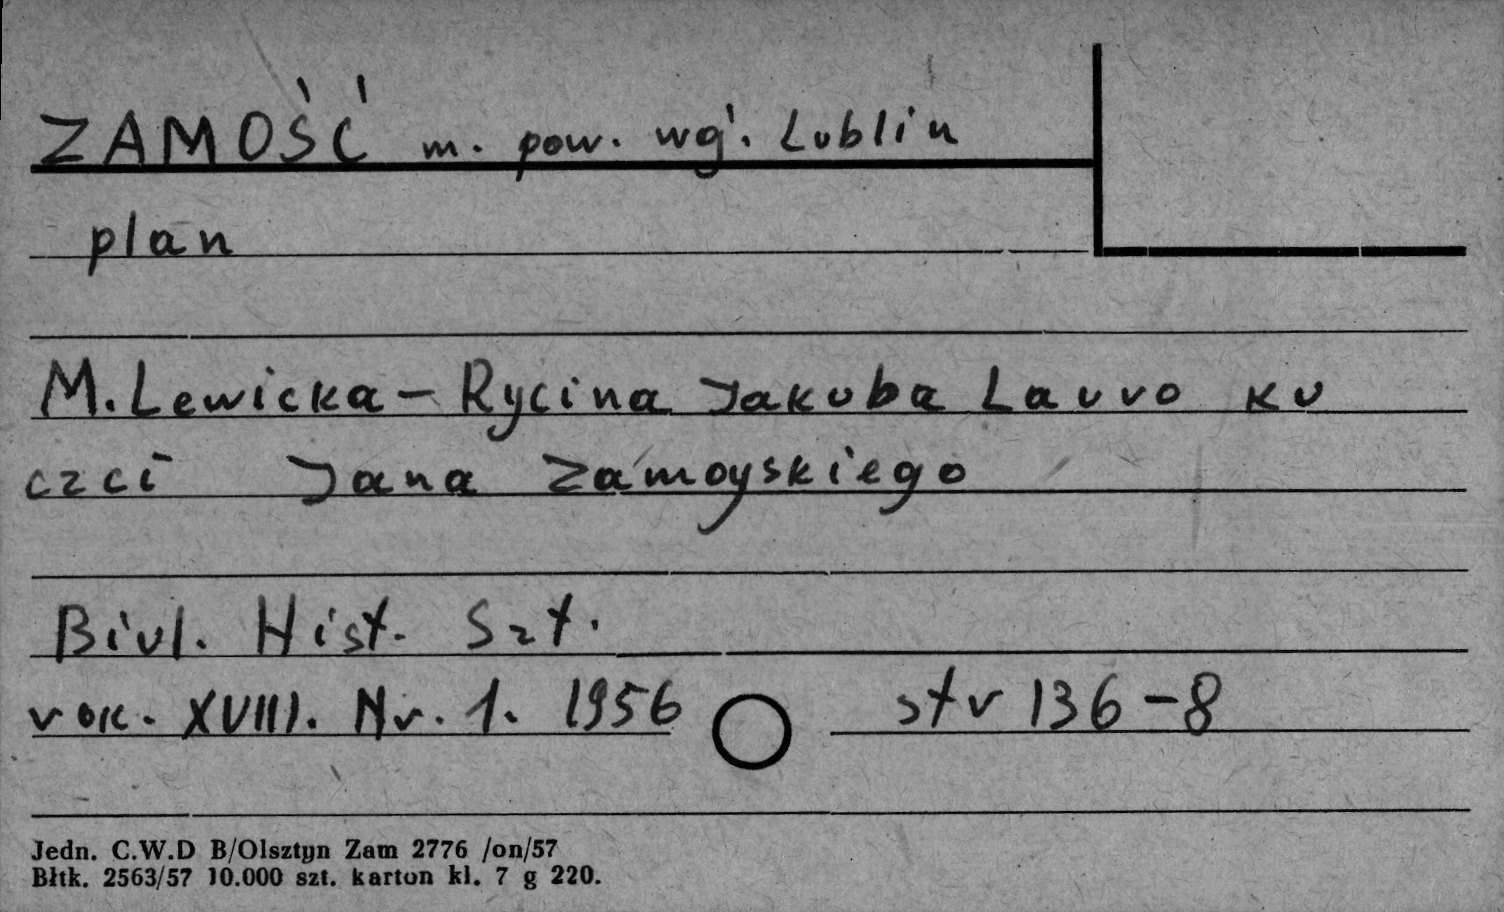 ZAMOŚĆ m. pow. wg. Lublin
plan
M. Lewicka – Rycina Jakuba Lauro ku
czci Jana Zamoyskiego
Biul. Hist. Szt.
rok. XVIII. Nr. 1. 1956 str 136-8
Jedn. C.W.D B/Olsztyn Zam 2776 /on/57
Błtk. 2563/57 10.000 szt. karton kl. 7 g 220.